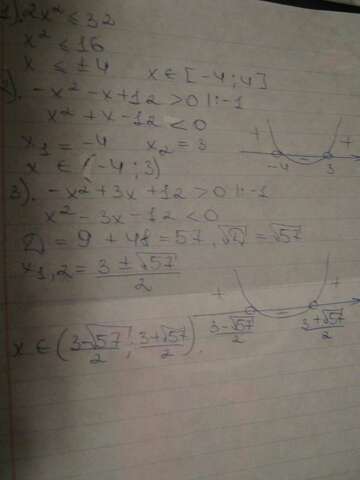 1). 2x² ≤ 32
x² ≤ 16
x ≤ ±4   x ∈ [-4; 4]
2). -x² - x + 12 > 0 |:-1
x² + x - 12 < 0
x₁ = -4   x₂ = 3
+ - +
-4 3
x ∈ (-4; 3)
3). -x² + 3x + 12 > 0 |:-1
x² - 3x - 12 < 0
D = 9 + 48 = 57, √D = √57
x₁,₂ = (3 ± √57)/2
+ - +
(3-√57)/2 (3+√57)/2
x ∈ ((3-√57)/2; (3+√57)/2).